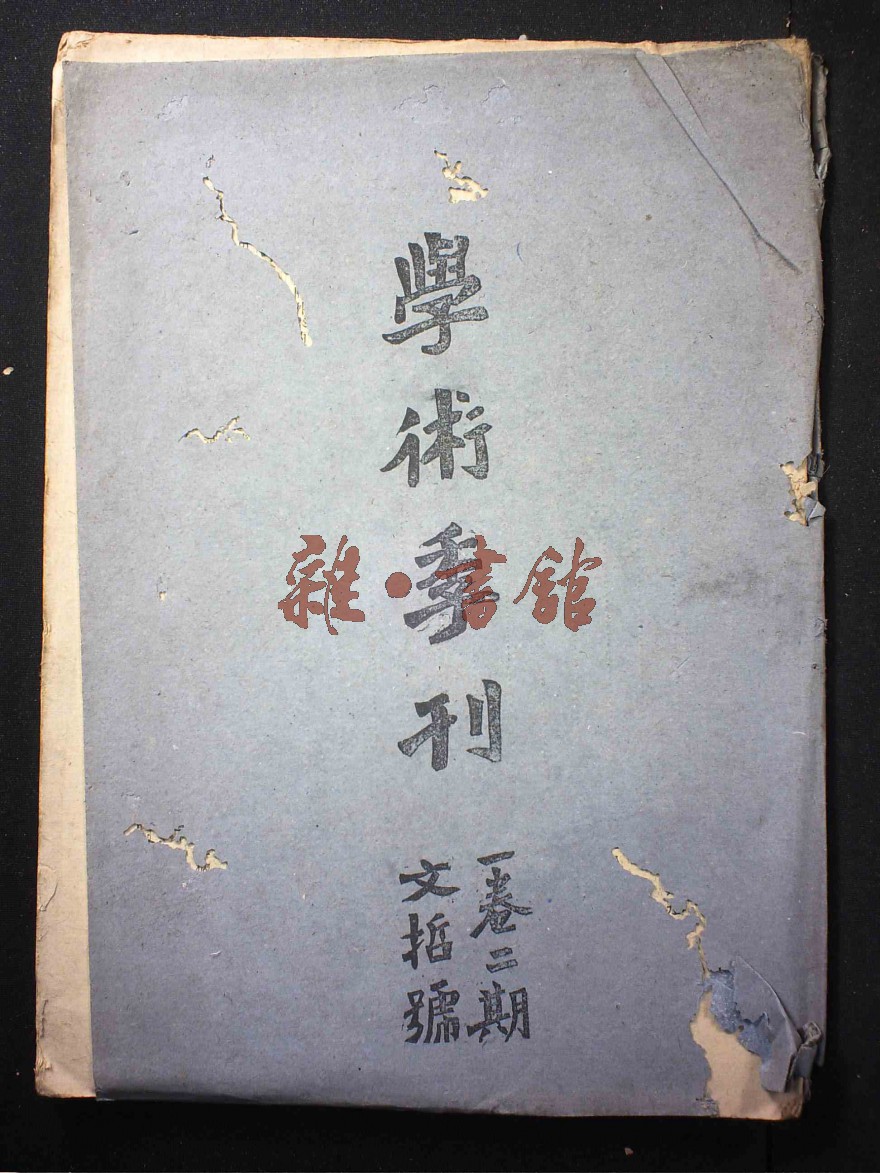 學術季刊
一卷二期
文哲號
雜·書館